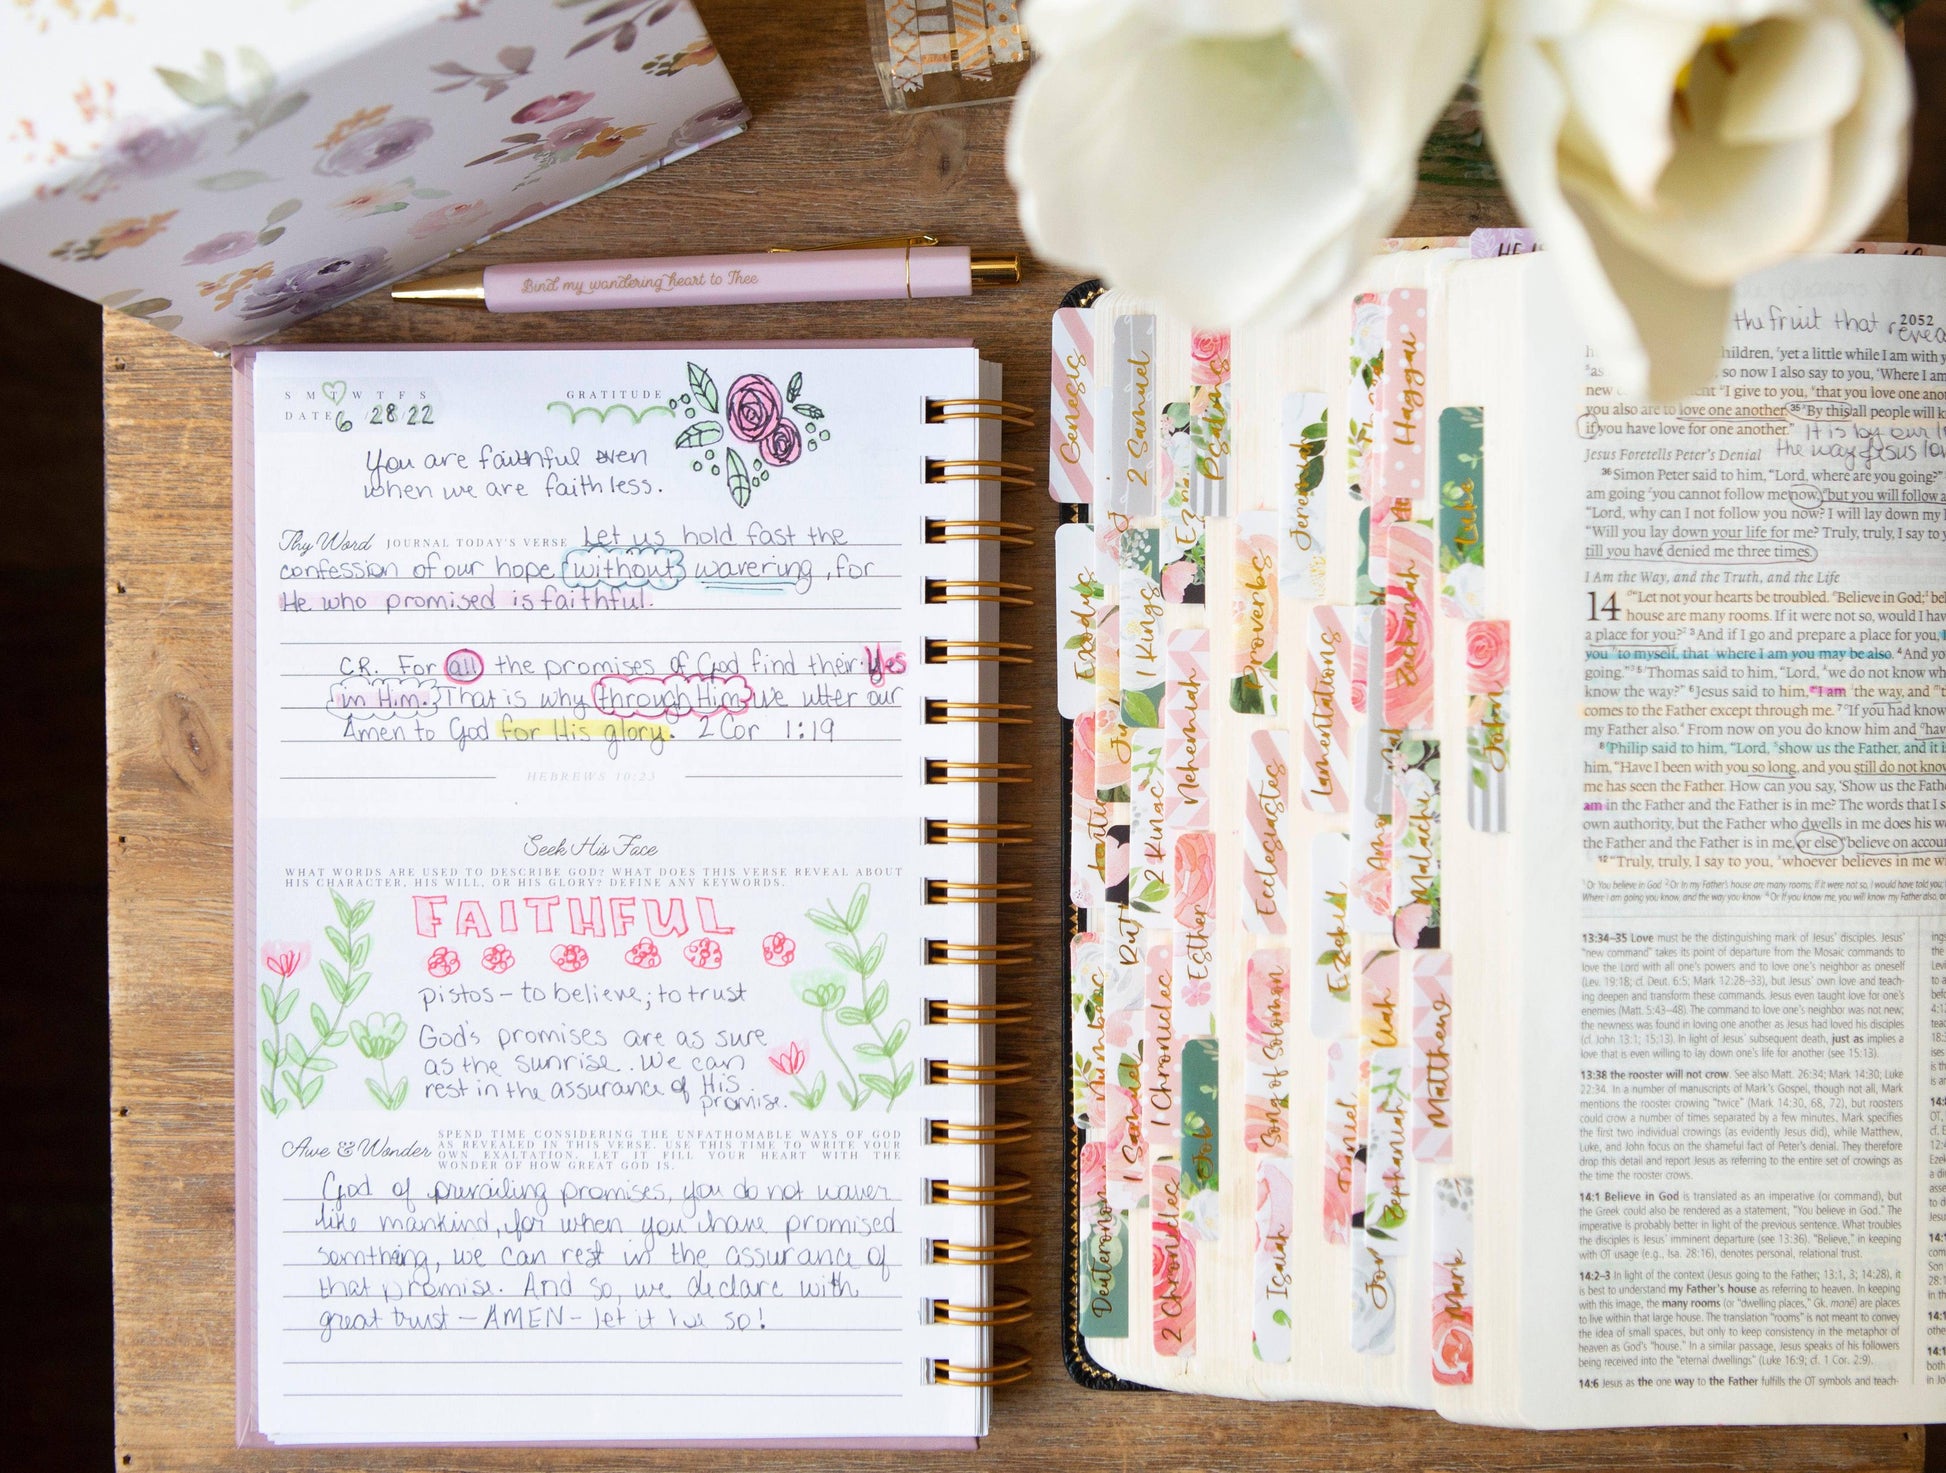 Bind my wandering heart to Thee
S M T W T F S
GRATITUDE
DATE 6 28 22
You are faithful even
when we are faithless.
Thy Word JOURNAL TODAY'S VERSE Let us hold fast the
confession of our hope without wavering, for
He who promised is faithful.
C.R. For all the promises of God find their Yes
in Him. That is why through Him we utter our
Amen to God for His glory. 2 Cor 1:19
HEBREWS 10:23
Seek His Face
WHAT WORDS ARE USED TO DESCRIBE GOD? WHAT DOES THIS VERSE REVEAL ABOUT
HIS CHARACTER, HIS WILL, OR HIS GLORY? DEFINE ANY KEYWORDS.
FAITHFUL
pistos - to believe; to trust
God's promises are as sure
as the sunrise. We can
rest in the assurance of His
promise.
Awe & Wonder
SPEND TIME CONSIDERING THE UNFATHOMABLE WAYS OF GOD
AS REVEALED IN THIS VERSE. USE THIS TIME TO WRITE YOUR
OWN EXALTATION. LET IT FILL YOUR HEART WITH THE
WONDER OF HOW GREAT GOD IS.
God of prevailing promises, you do not waver
like mankind, for when you have promised
somthing, we can rest in the assurance of
that promise. And so, we declare with
great trust - AMEN - let it be so!
Genesis
2 Samuel
Psalms
Jeremiah
Haggai
Luke
Exodus
1 Kings
Proverbs
Zechariah
John
Nehemiah
Lamentations
2 Kings
Ecclesiastes
Malachi
Esther
Numbers
1 Chronicles
Song of Solomon
Matthew
1 Samuel
Job
Daniel
Zephaniah
2 Chronicles
Isaiah
Mark
the fruit that
2052
hildren, yet a little while I am with y
so now I also say to you, 'Where I am
new I give to you, that you love one anot
you also are to love one another. 35 By this all people will k
if you have love for one another."
Jesus Foretells Peter's Denial
36 Simon Peter said to him, "Lord, where are you going?"
am going you cannot follow me now, but you will follow a
"Lord, why can I not follow you now? I will lay down my l
"Will you lay down your life for me? Truly, truly, I say to y
till you have denied me three times.
I Am the Way, and the Truth, and the Life
14 "Let not your hearts be troubled. Believe in God; bel
house are many rooms. If it were not so, would I hav
a place for you? 3 And if I go and prepare a place for you,
you to myself, that where I am you may be also. 4 And yo
going." 5 Thomas said to him, "Lord, we do not know wh
know the way?" 6 Jesus said to him, "I am the way, and t
comes to the Father except through me. 7 If you had know
my Father also. From now on you do know him and hav
8 Philip said to him, "Lord, show us the Father, and it i
him, "Have I been with you so long, and you still do not know
me has seen the Father. How can you say, 'Show us the Fath
am in the Father and the Father is in me? The words that I s
own authority, but the Father who dwells in me does his w
the Father and the Father is in me, or else believe on accoun
12 "Truly, truly, I say to you, whoever believes in me w
13:34–35 Love must be the distinguishing mark of Jesus' disciples. Jesus'
"new command" takes its point of departure from the Mosaic commands to
love the Lord with all one's powers and to love one's neighbor as oneself
(Lev. 19:18; cf. Deut. 6:5; Mark 12:28–33), but Jesus' own love and teach-
ing deepen and transform these commands. Jesus even taught love for one's
enemies (Matt. 5:43–48). The command to love one's neighbor was not new;
the newness was found in loving one another as Jesus had loved his disciples
(cf. John 13:1; 15:13). In light of Jesus' subsequent death, just as implies a
love that is even willing to lay down one's life for another (see 15:13).
13:38 the rooster will not crow. See also Matt. 26:34; Mark 14:30; Luke
22:34. In a number of manuscripts of Mark's Gospel, though not all, Mark
mentions the rooster crowing "twice" (Mark 14:30, 68, 72), but roosters
could crow a number of times separated by a few minutes. Mark specifies
the first two individual crowings (as evidently Jesus did), while Matthew,
Luke, and John focus on the shameful fact of Peter's denial. They therefore
drop this detail and report Jesus as referring to the entire set of crowings as
the time the rooster crows.
14:1 Believe in God is translated as an imperative (or command), but
the Greek could also be rendered as a statement, "You believe in God." The
imperative is probably better in light of the previous sentence. What troubles
the disciples is Jesus' imminent departure (see 13:36). "Believe," in keeping
with OT usage (e.g., Isa. 28:16), denotes personal, relational trust.
14:2–3 In light of the context (Jesus going to the Father; 13:1, 3; 14:28), it
is best to understand my Father's house as referring to heaven. In keeping
with this image, the many rooms (or "dwelling places," Gk. monē) are places
to live within that large house. The translation "rooms" is not meant to convey
the idea of small spaces, but only to keep consistency in the metaphor of
heaven as God's "house." In a similar passage, Jesus speaks of his followers
being received into the "eternal dwellings" (Luke 16:9; cf. 1 Cor. 2:9).
14:6 Jesus as the one way to the Father fulfills the OT symbols and teach-